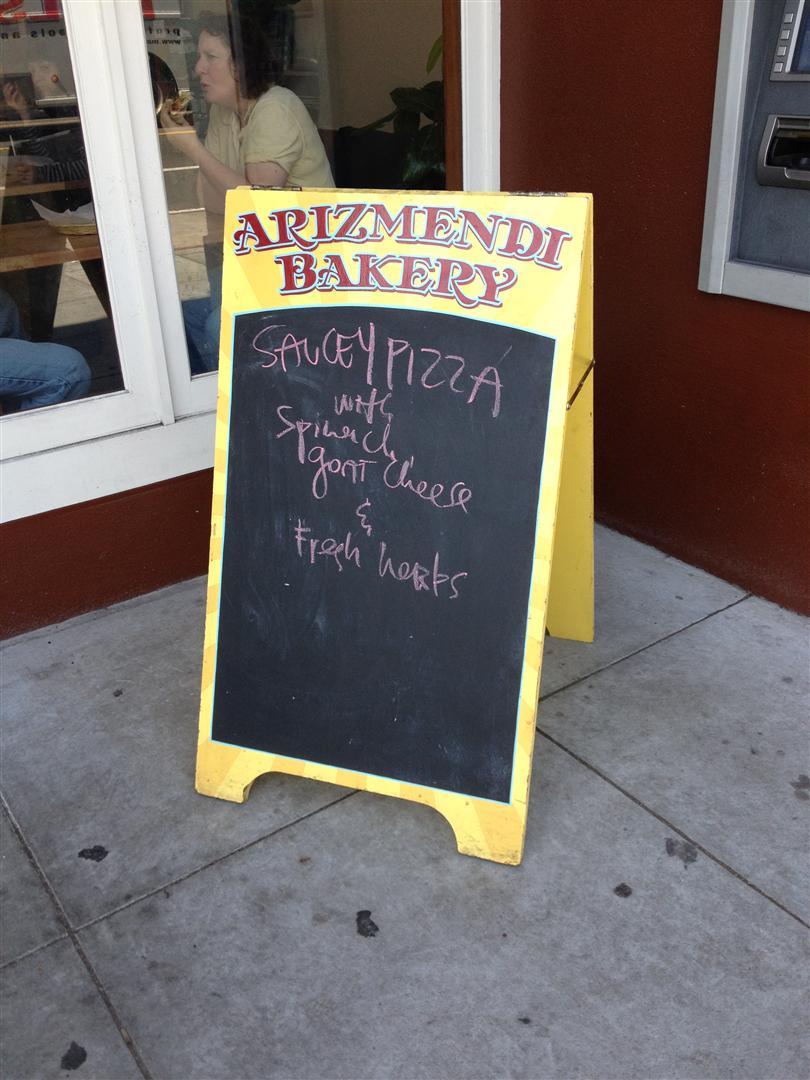 ARIZMENDI
BAKERY
SAUCEY PIZZA
with
Spinach,
goat cheese
&
Fresh herbs